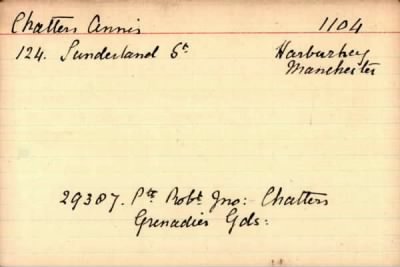 Chatters Annis 1104
124. Sunderland St Harpurhey
Manchester
29387. Pte Robt Jno: Chatters
Grenadier Gds: